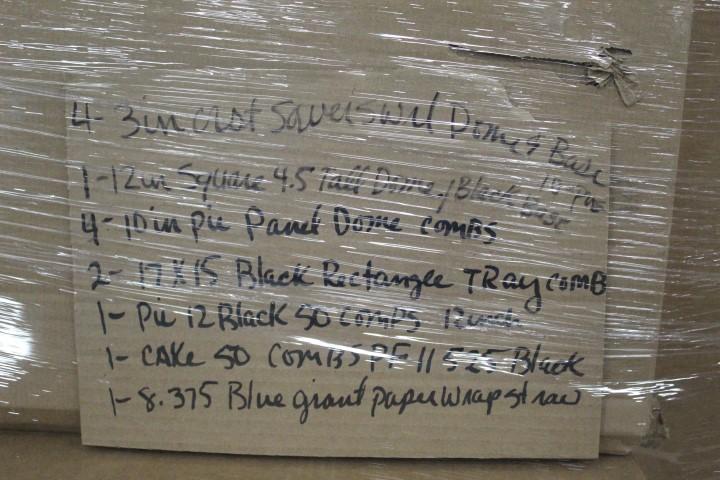 4- 3in cast Savers w/ Dome & Base
1-12in Square 4.5 Tall Dome/Black Base
4- 10in pie Panel Dome combs
2- 17X15 Black Rectangle TRay comB
1- Pie 12 Black 50 comBs 12inch
1- CAKe 50 comBS PF 11 525 Black
1-8.375 Blue giant paper wrap straw